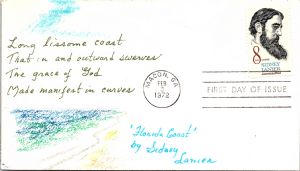 Long lissome coast
That in and outward swerves
The grace of God
Made manifest in curves
8
SIDNEY
LANIER
MACON, GA
FEB
1972
FIRST DAY OF ISSUE
"Florida Coast"
by Sidney
Lanier